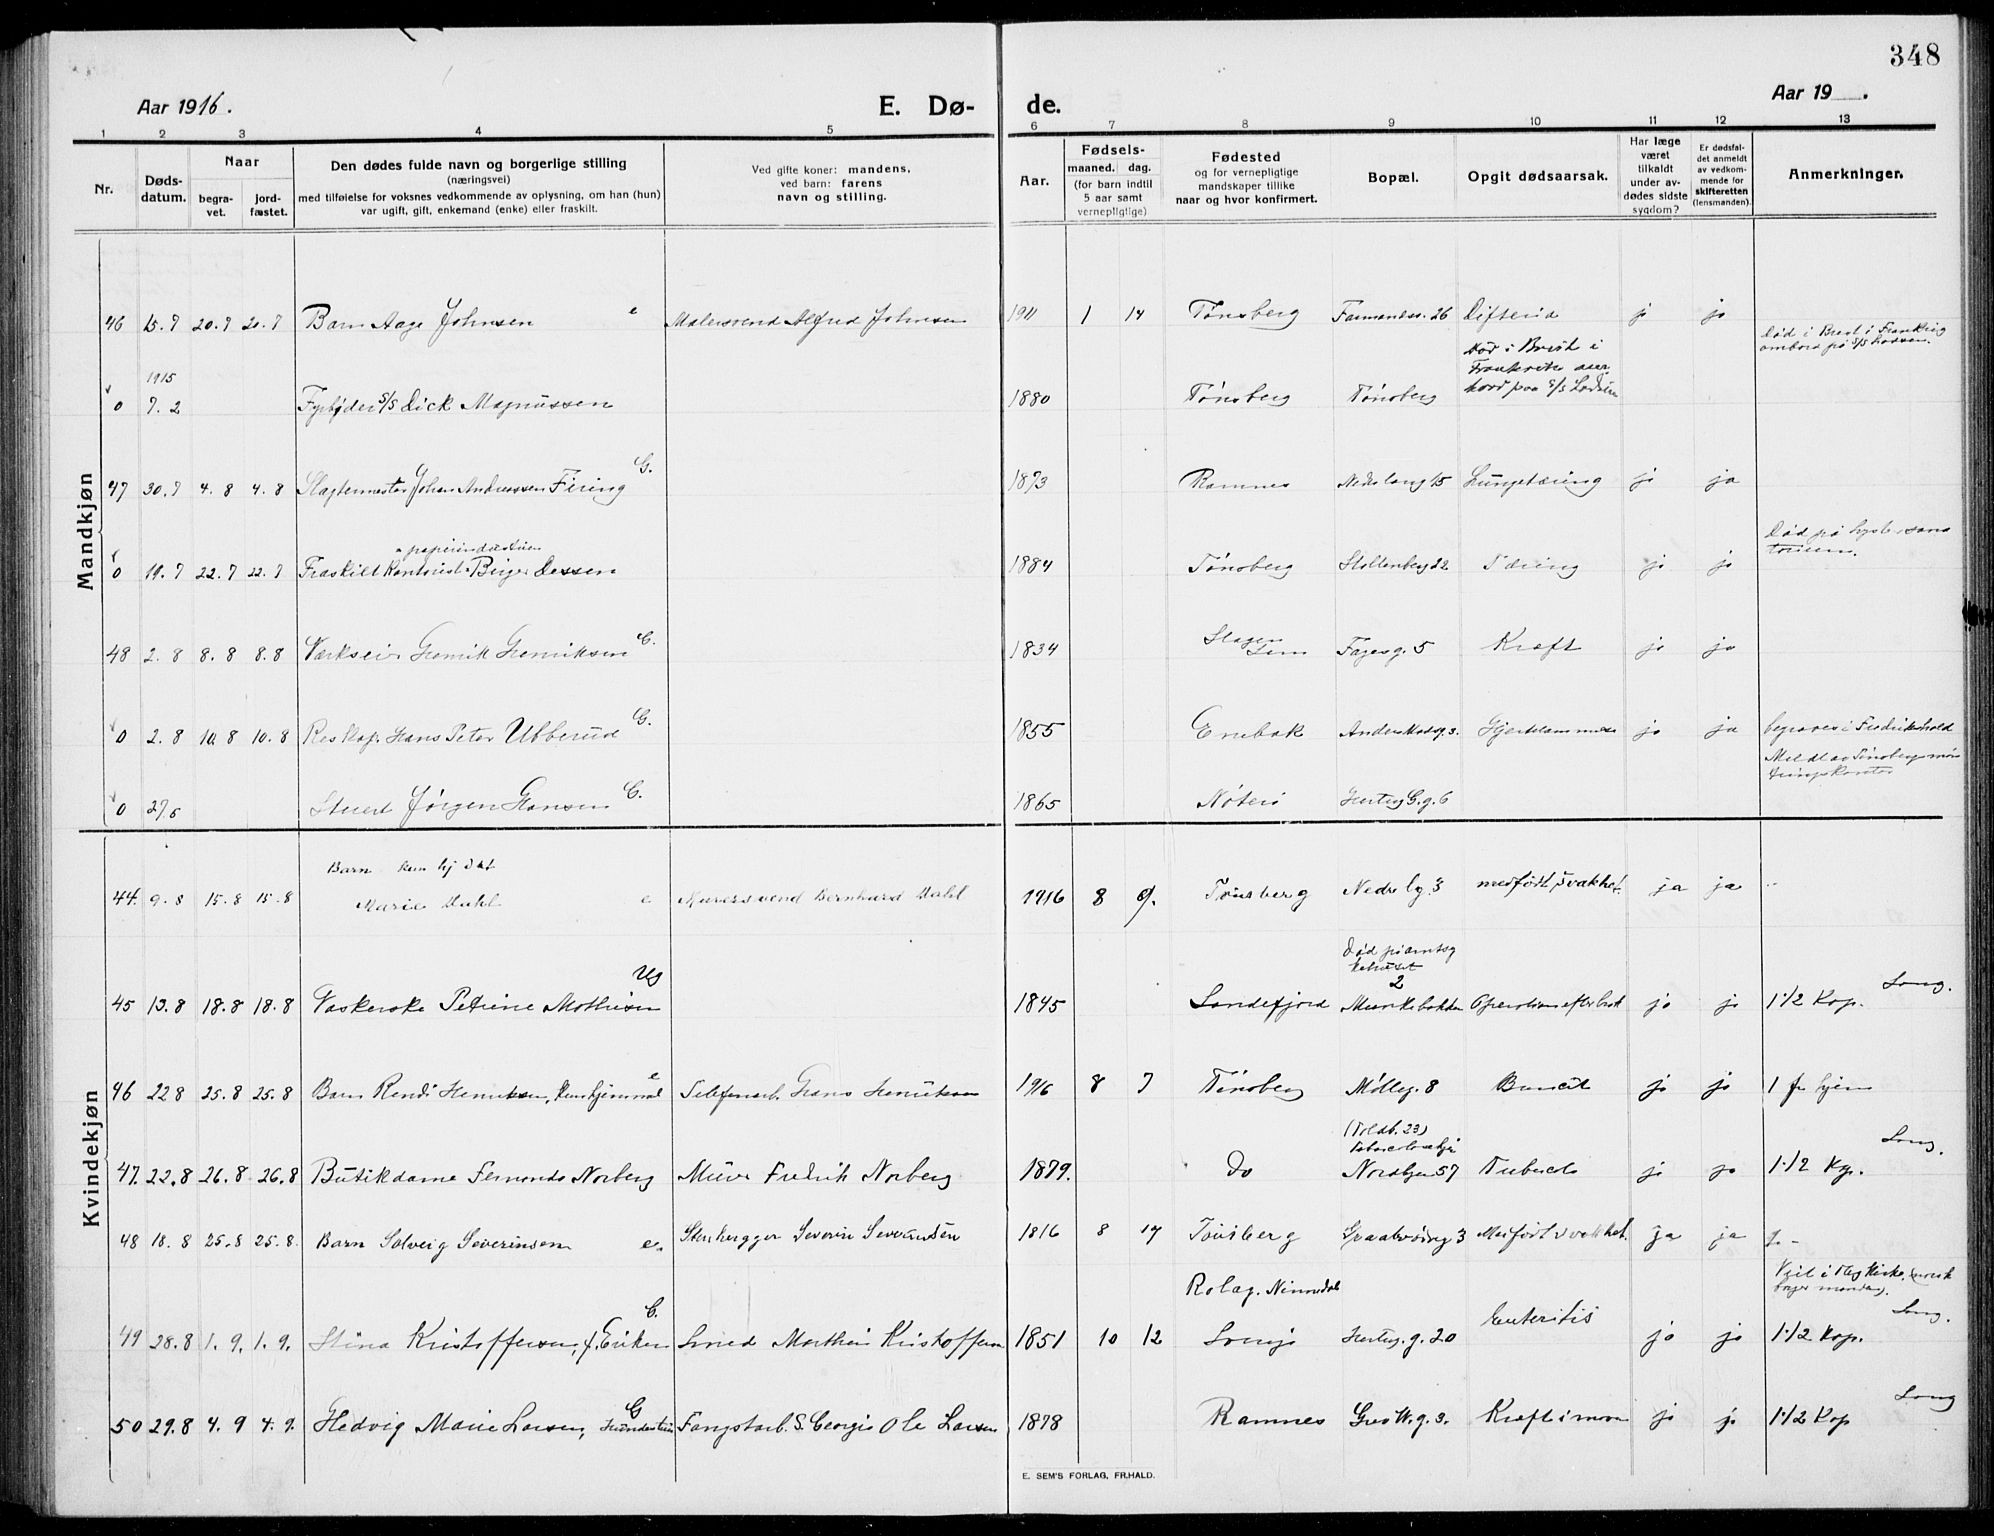 348
Aar 1916.
E. Dø-
de.
Aar 19 .
1 2 3 4 5 6 7 8 9 10 11 12 13
Nr.
Døds-
datum.
Naar
begra-
vet.
jord-
fæstet.
Den dødes fulde navn og borgerlige stilling
(næringsvei)
med tilføielse for voksnes vedkommende av oplysning, om han (hun)
var ugift, gift, enkemand (enke) eller fraskilt.
Ved gifte koner: mandens,
ved barn: farens
navn og stilling.
Aar.
Fødsels-
maaned. dag.
(for barn indtil
5 aar samt
vernepligtige)
Fødested
og for vernepligtige
mandskaper tillike
naar og hvor konfirmert.
Bopæl.
Opgit dødsaarsak.
Har læge
været
tilkaldt
under av-
dødes sidste
sygdom?
Er dødsfal-
det anmeldt
av vedkom-
mende for
skifteretten
(lensmanden).
Anmerkninger.
Mandkjøn
46 15.7 20.7 20.7 Barn Aage Johnsen e Malersvend Alfred Johnsen 1911 1 14 Tønsberg Farmandss. 26 Difterid ja ja
Død i Brest i Frankrig
ombord på S/S
Død i Brest i
Frankrike
bord paa S/S
1915
0 7.2 Fyrbøder S/S Dick Magnussen 1880 Tønsberg Tønsberg
47 30.7 4.8 4.8 Slagtermester Johan Andreassen Firing G. 1873 Ramnes Nedre lang 15 Lungetæring ja ja
Død på Lyster sana
torium.
papirindustrien
0 19.7 22.7 22.7 Fraskilt Kontorist Birger Dessen 1884 Tønsberg Stoltenberg 22 Tæring ja ja
48 2.8 8.8 8.8 Henrik Henriksen E. 1834 Slagen
Sem Fayesg. 5 Kræft ja ja
0 2.8 10.8 10.8 Hans Peter Ubberud G. 1855 Enebak Anders Madsg. 3. Hjertelammelse ja ja begraves i Fredrikshald
Meldt av Tønsberg møn
stringskontor
0 27.6 Stuert Jørgen Hansen G. 1865 Nøterø Hertug G.g. 6
Kvindekjøn
Barn kun hj døpt
44. 9.8 15.8 15.8 Marie Dahl e Murersvend Bernhard Dahl 1916 8 9. Tønsberg Nedre lg. 3 medfødt svakhet. ja ja
Død på amtssy
kehuset
45 13.8 18.8 18.8 Vaskerske Petrine Mathisen Ug 1845 Sandefjord 2
Munkebakken Operation efter brok ja ja 1 1/2 Kap. Sang.
46 22.8 25.8 25.8 Barn Randi Henriksen, kun hjemmed. e Telefonarb. Hans Henriksen 1916 8 7 Tønsberg Mølleg. 8 ja ja 1 fr hjem
(Toldb. 23)
47. 22.8 26.8 26.8 Butikdame Fernanda Norberg Murer Fredrik Norberg 1879. Do Nordbyen 57 ja ja 1 1/2 Kap. Sang.
48 18.8 25.8 25.8. Barn Solveig Severinsen e. Stenhugger Severin Severinsen 1816 8 17 Tønsberg 3 Medfødt svakhet. ja ja
Rolag, Numedal
Viet i
49 28.8 1.9. 1.9. Stina Kristoffersen, f. Eriksen G. Smed Mathias Kristoffersen 1851 10 12 Hertug. g. 20 Enteritis ja ja 1 1/2 Kap. Sang.
50 29.8 4.9 4.9. Hedvig Marie Larsen, G Fangstarb. S. Georgia Ole Larsen 1878 Ramnes Grev W.g. 3. Kræft i maven ja ja 1 1/2 Kap Sang
E. SEM'S FORLAG, FR.HALD.